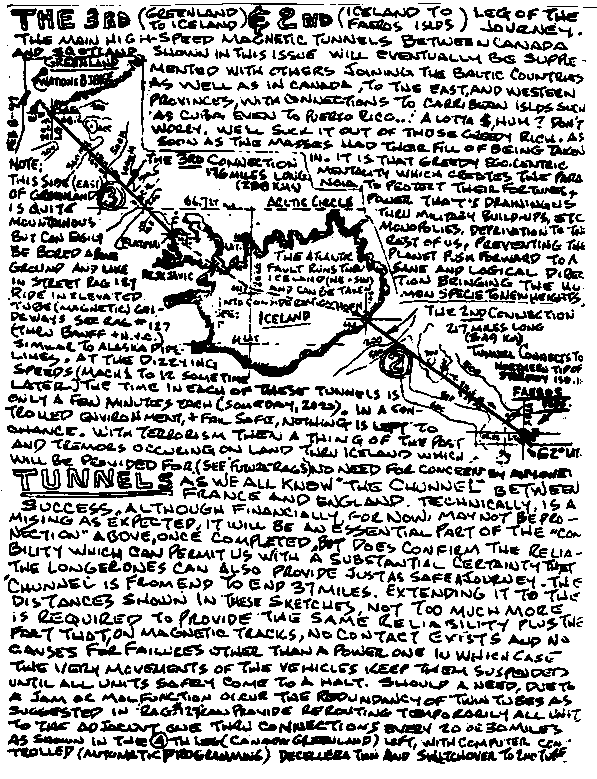 THE 3RD (GREENLAND TO ICELAND) & 2ND (ICELAND TO FAEROS ISLDS) LEG OF THE JOURNEY.
THE MAIN HIGH-SPEED MAGNETIC TUNNELS BETWEEN CANADA
AND SCOTLAND SHOWN IN THIS ISSUE WILL EVENTUALLY BE SUPPLE-
MENTED WITH OTHERS JOINING THE BALTIC COUNTRIES
AS WELL AS IN CANADA, TO THE EAST, AND WESTERN
PROVINCES, WITH CONNECTIONS TO CARRIBEAN ISLDS SUCH
AS CUBA EVEN TO PUERTO RICO...! A LOTTA $, HUH? DON'T
WORRY. WE'LL SUCK IT OUT OF THOSE GREEDY RICH, AS
SOON AS THE MASSES HAD THEIR FILL OF BEING TAKEN
IN. IT IS THAT GREEDY EGO-CENTRIC
MENTALITY WHICH CREATES THE PARA
NOIA TO PROTECT THEIR FORTUNES,
POWER THAT'S DRAINING US
THRU MILITARY BUILD-UPS, ETC
MONOPOLIES, DEPRIVATION TO THE
REST OF US, PREVENTING THE
PLANET PUSH FORWARD TO A
SANE AND LOGICAL DIREC-
TION BRINGING THE HU-
MON SPECIE TO NEW HEIGHTS.
GREENLAND
THE 3RD CONNECTION
176 MILES LONG
ARCTIC CIRCLE
NOTE:
THIS SIDE (EAST)
OF GREENLAND
IS QUITE
MOUNTAINOUS
BUT CAN EASILY
BE BORED ABOVE
GROUND AND LIKE
IN STREET RAG 127
RIDE IN ELEVATED
TUBE (MAGNETIC) GUI-
DEWAYS SEE RAG #127
(THRU BANFF
SIMILAR TO ALASKA PIPE-
LINES. AT THE DIZZYING
SPEEDS (MACH 5 TO 12 SOMETIME
LATER) THE TIME IN EACH OF THESE TUNNELS IS
ONLY A FEW MINUTES EACH (SOMEDAY, 2020). IN A CON-
TROLLED ENVIRONMENT, + FAIL SAFE, NOTHING IS LEFT TO
CHANCE. WITH TERRORISM THEN A THING OF THE PAST
AND TREMORS OCCURING ON LAND THRU ICELAND WHICH
WILL BE PROVIDED FOR (SEE FUTURE RAGS) NO NEED FOR CONCERN
3
REKJAVIC
THE ATLANTIC
FAULT RUNS THRU
ICELAND
AND CAN BE TAKEN
INTO CONSIDERATION
ICELAND
HORN
THE 2ND CONNECTION
217 MILES LONG
TUNNEL CONNECTS TO
NORTHERN TIP OF
2
FAEROS
62° LAT.
TUNNELS AS WE ALL KNOW "THE CHUNNEL" BETWEEN
FRANCE AND ENGLAND. TECHNICALLY, IS A
SUCCESS, ALTHOUGH FINANCIALLY, FOR NOW, MAY NOT BE PRO-
MISING AS EXPECTED, IT WILL BE AN ESSENTIAL PART OF THE "CON
NECTION" ABOVE, ONCE COMPLETED, BUT DOES CONFIRM THE RELIA-
BILITY WHICH CAN PERMIT US WITH A SUBSTANTIAL CERTAINTY THAT
THE LONGER ONES CAN ALSO PROVIDE JUST AS SAFE A JOURNEY. THE
"CHUNNEL" IS FROM END TO END 37 MILES. EXTENDING IT TO THE
DISTANCES SHOWN IN THESE SKETCHES, NOT TOO MUCH MORE
IS REQUIRED TO PROVIDE THE SAME RELIABILITY PLUS THE
FACT THAT, ON MAGNETIC TRACKS, NO CONTACT EXISTS AND NO
CAUSES FOR FAILURES OTHER THAN A POWER ONE IN WHICH CASE
THE VERY MOVEMENTS OF THE VEHICLES KEEP THEM SUSPENDED
UNTIL ALL UNITS SAFELY COME TO A HALT. SHOULD A NEED, DUE TO
A JAM OR MALFUNCTION OCCUR THE REDUNDANCY OF TWIN TUBES AS
SUGGESTED IN RAG #127 CAN PROVIDE REROUTING TEMPORARILY ALL UNITS
TO THE ADJACENT ONE THRU CONNECTIONS EVERY 20 OR 30 MILES
AS SHOWN IN THE 4TH LEG (CANADA GREENLAND) LEFT, WITH COMPUTER CON
TROLLED (AUTOMATIC PROGRAMMING) DECELLERATION AND SWITCHOVER TO 2ND TUBE